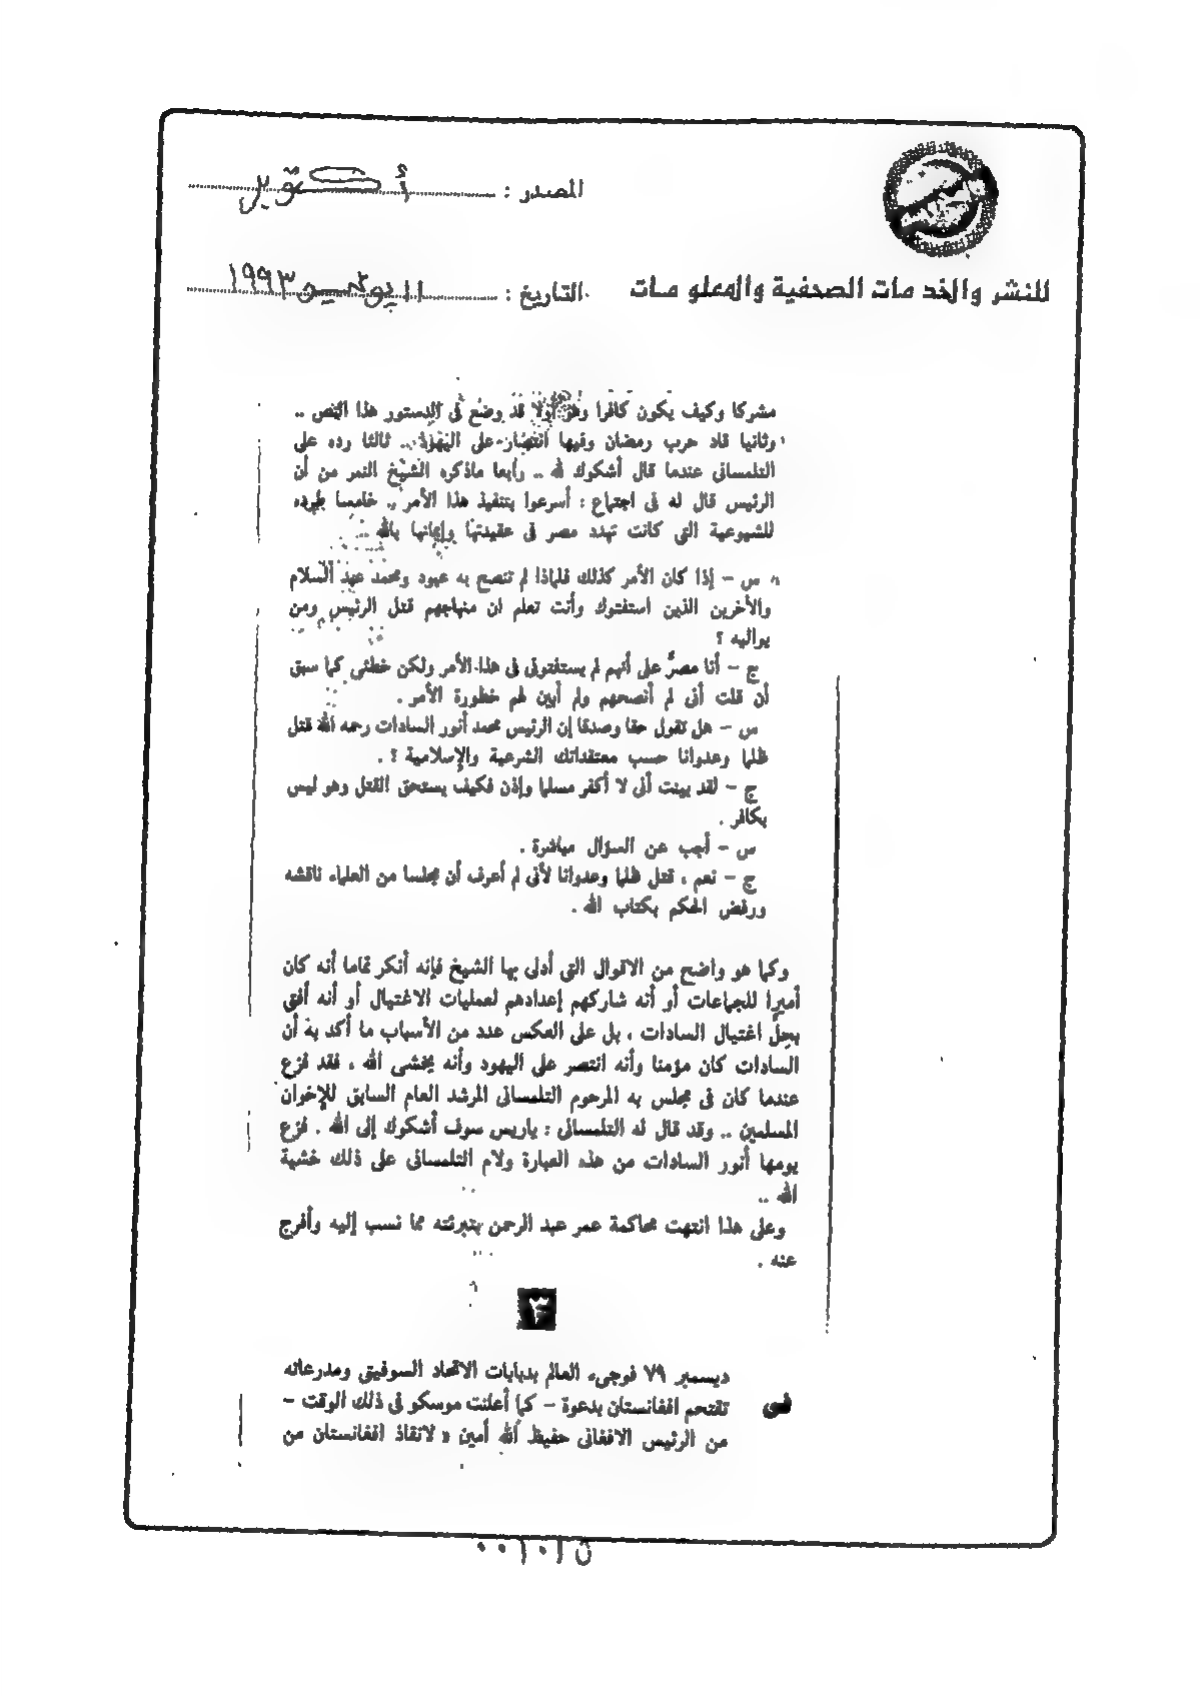 المصدر : أكتوبر
للنشر والخدمات الصحفية والمعلومات
التاريخ : ١١ يوليو ١٩٩٣
مشركا وكيف يكون كافرا وهو أولا قد وضع فى الدستور هذا النص ..
وثانيا قاد حرب رمضان وفيها انتصار على اليهود .. ثالثا رده على
التلمسانى عندما قال أشكوك لله .. رابعا ماذكره الشيخ النمر من أن
الرئيس قال له فى اجتماع : أسرعوا بتنفيذ هذا الأمر .. خامسا طرده
للشيوعية التى كانت تهدد مصر فى عقيدتها وإيمانها بالله ..
س – إذا كان الأمر كذلك فلماذا لم تنصح به عبود ومحمد عبد السلام
والأخرين الذين استفتوك وأنت تعلم ان منهاجهم قتل الرئيس ومن
يواليه ؟
ج – أنا مصرٌ على أنهم لم يستفتونى فى هذا الأمر ولكن خطئى كما سبق
أن قلت أنى لم أنصحهم ولم أبين لهم خطورة الأمر .
س – هل تقول حقا وصدقا إن الرئيس محمد أنور السادات رحمه الله قتل
ظلما وعدوانا حسب معتقداتك الشرعية والإسلامية ؟ .
ج – لقد بينت أنى لا أكفر مسلما وإذن فكيف يستحق القتل وهو ليس
بكافر .
س – أجب عن السؤال مباشرة .
ج – نعم ، قتل ظلما وعدوانا لأنى لم أعرف أن مجلسا من العلماء ناقشه
ورفض الحكم بكتاب الله .
وكما هو واضح من الاقوال التى أدلى بها الشيخ فإنه أنكر تماما أنه كان
أميرا للجماعات أو أنه شاركهم إعدادهم لعمليات الاغتيال أو أنه أفتى
بحِلّ اغتيال السادات ، بل على العكس عدد من الأسباب ما أكد به أن
السادات كان مؤمنا وأنه انتصر على اليهود وأنه يخشى الله ، فقد فزع
عندما كان فى مجلس به المرحوم التلمسانى المرشد العام السابق للإخوان
المسلمين .. وقد قال له التلمسانى : ياريس سوف أشكوك إلى الله . فزع
يومها أنور السادات من هذه العبارة ولام التلمسانى على ذلك خشية
الله ..
وعلى هذا انتهت محاكمة عمر عبد الرحمن بتبرئته مما نسب إليه وأفرج
عنه .
٣
فى ديسمبر ٧٩ فوجىء العالم بدبابات الاتحاد السوفيتى ومدرعاته
تقتحم افغانستان بدعوة – كما أعلنت موسكو فى ذلك الوقت –
من الرئيس الافغانى حفيظ الله أمين « لانقاذ افغانستان من